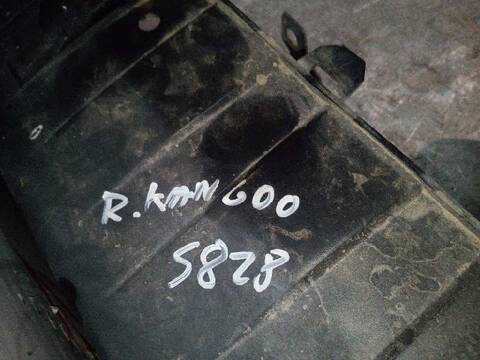 R.KANGOO
5828